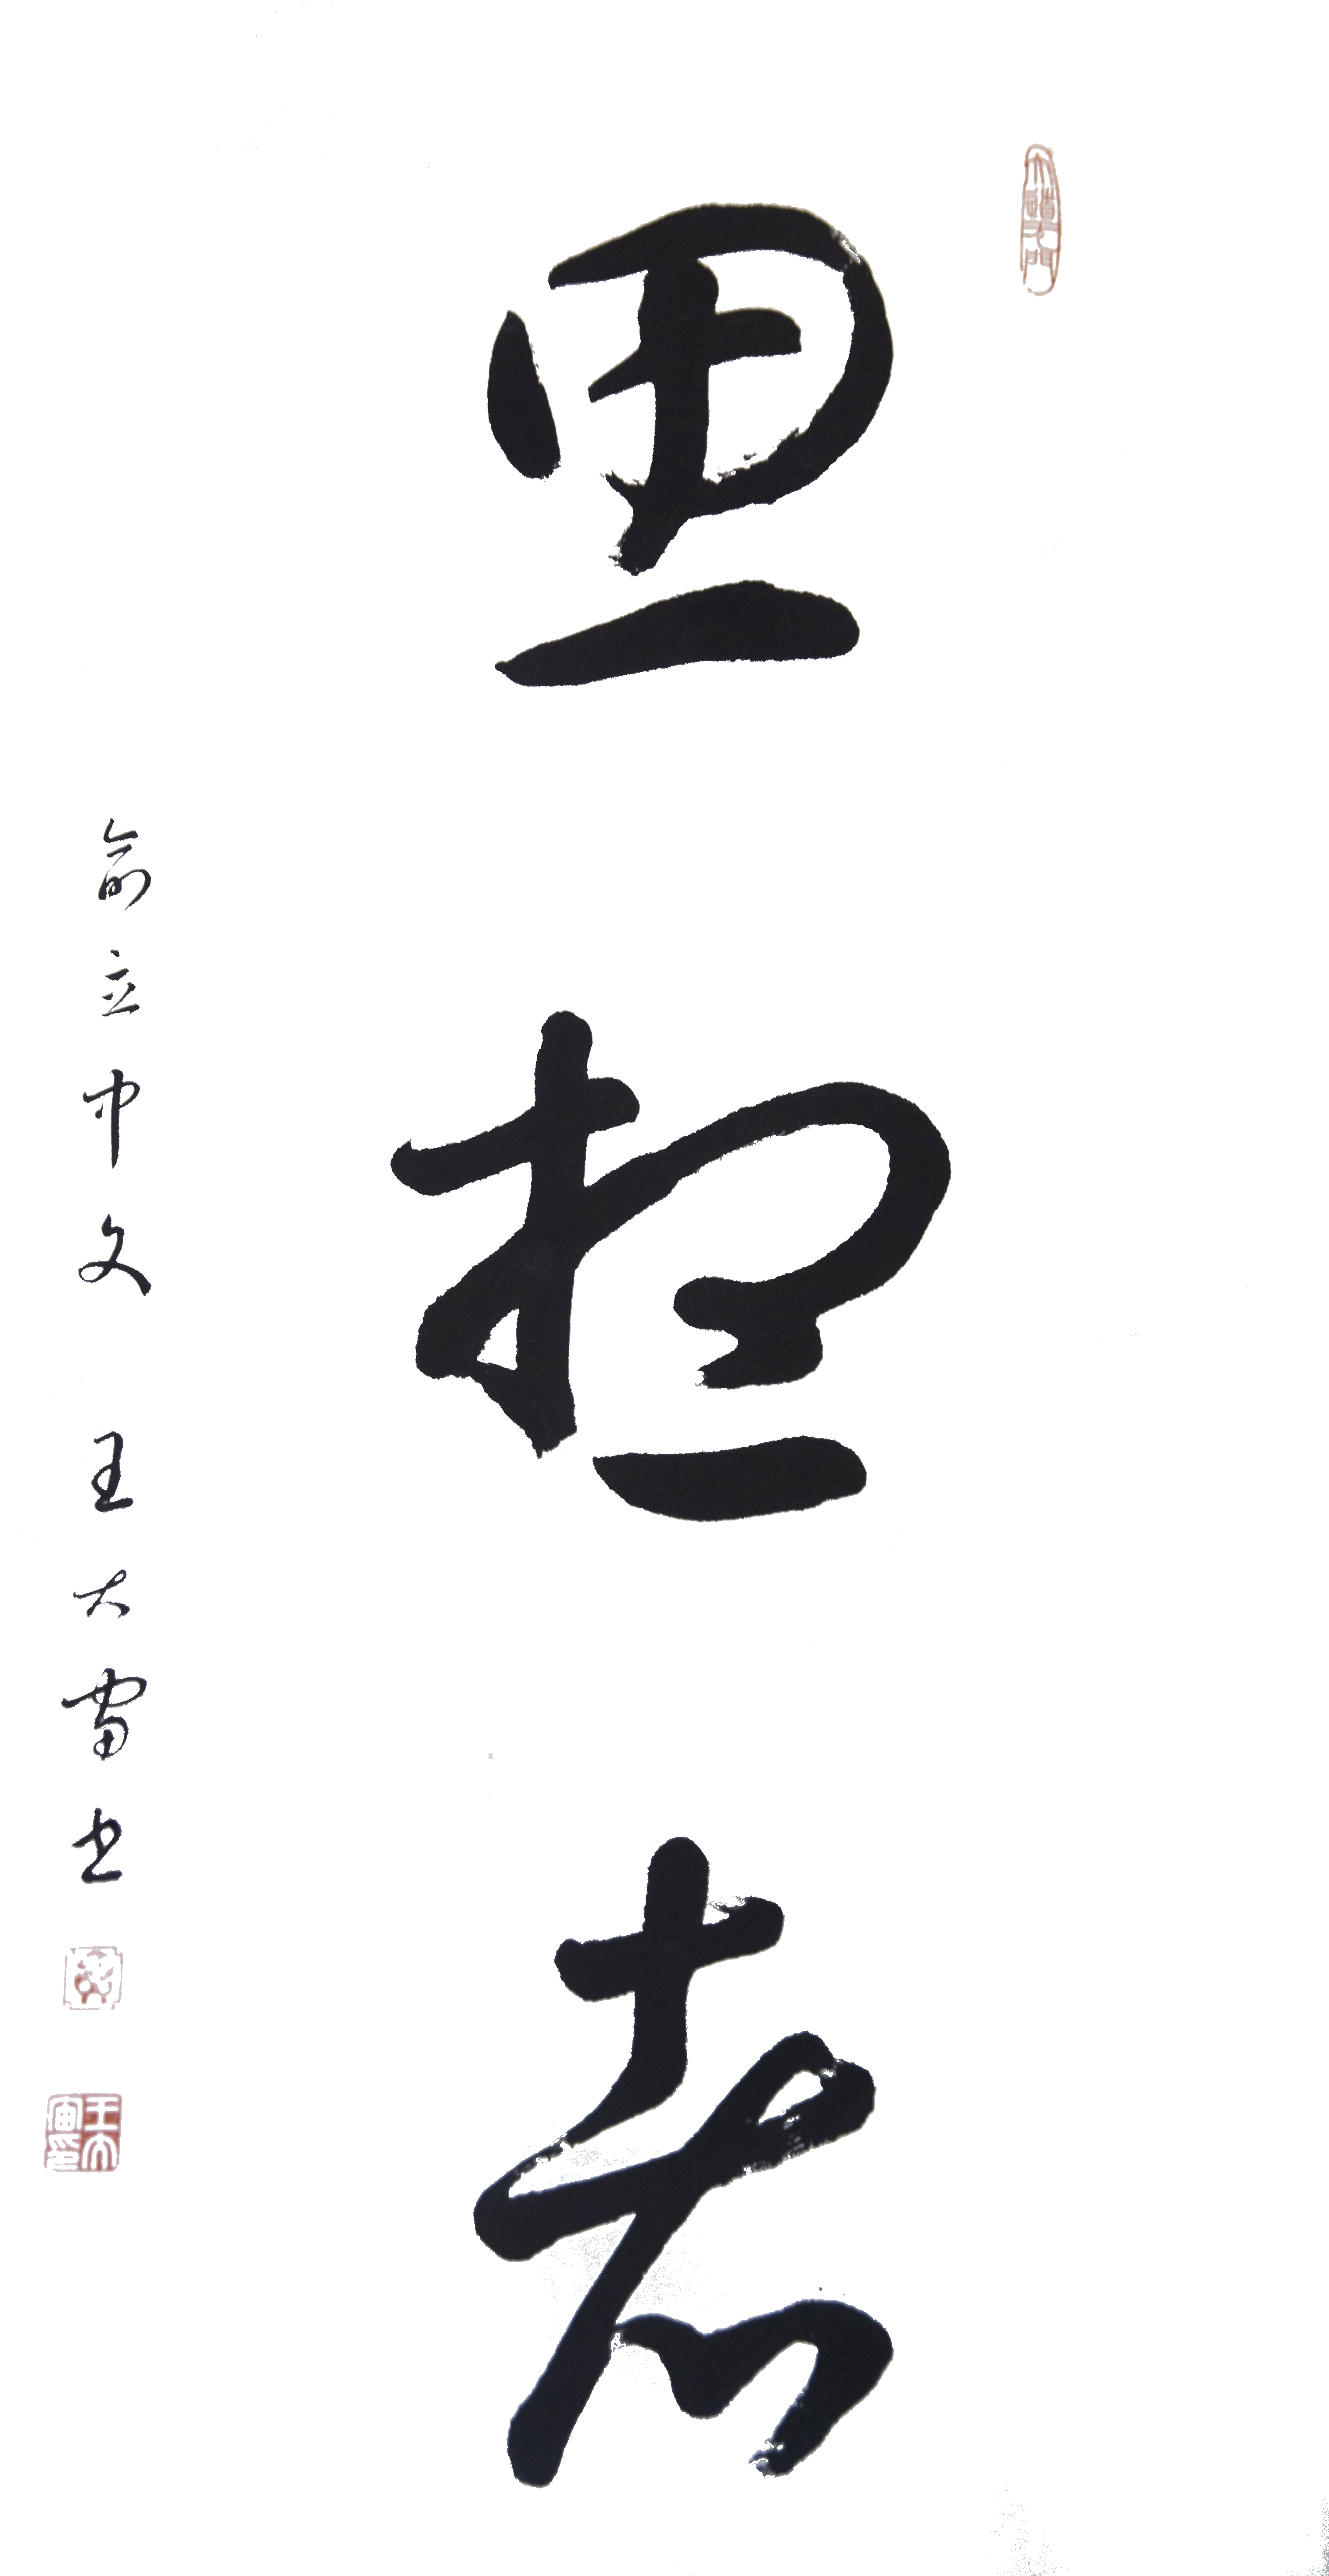 思想者
俞立中文 王大宙书
王大宙印